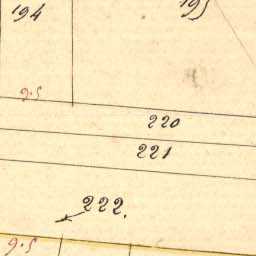 194
195
9.5
220
221
222.
9.5